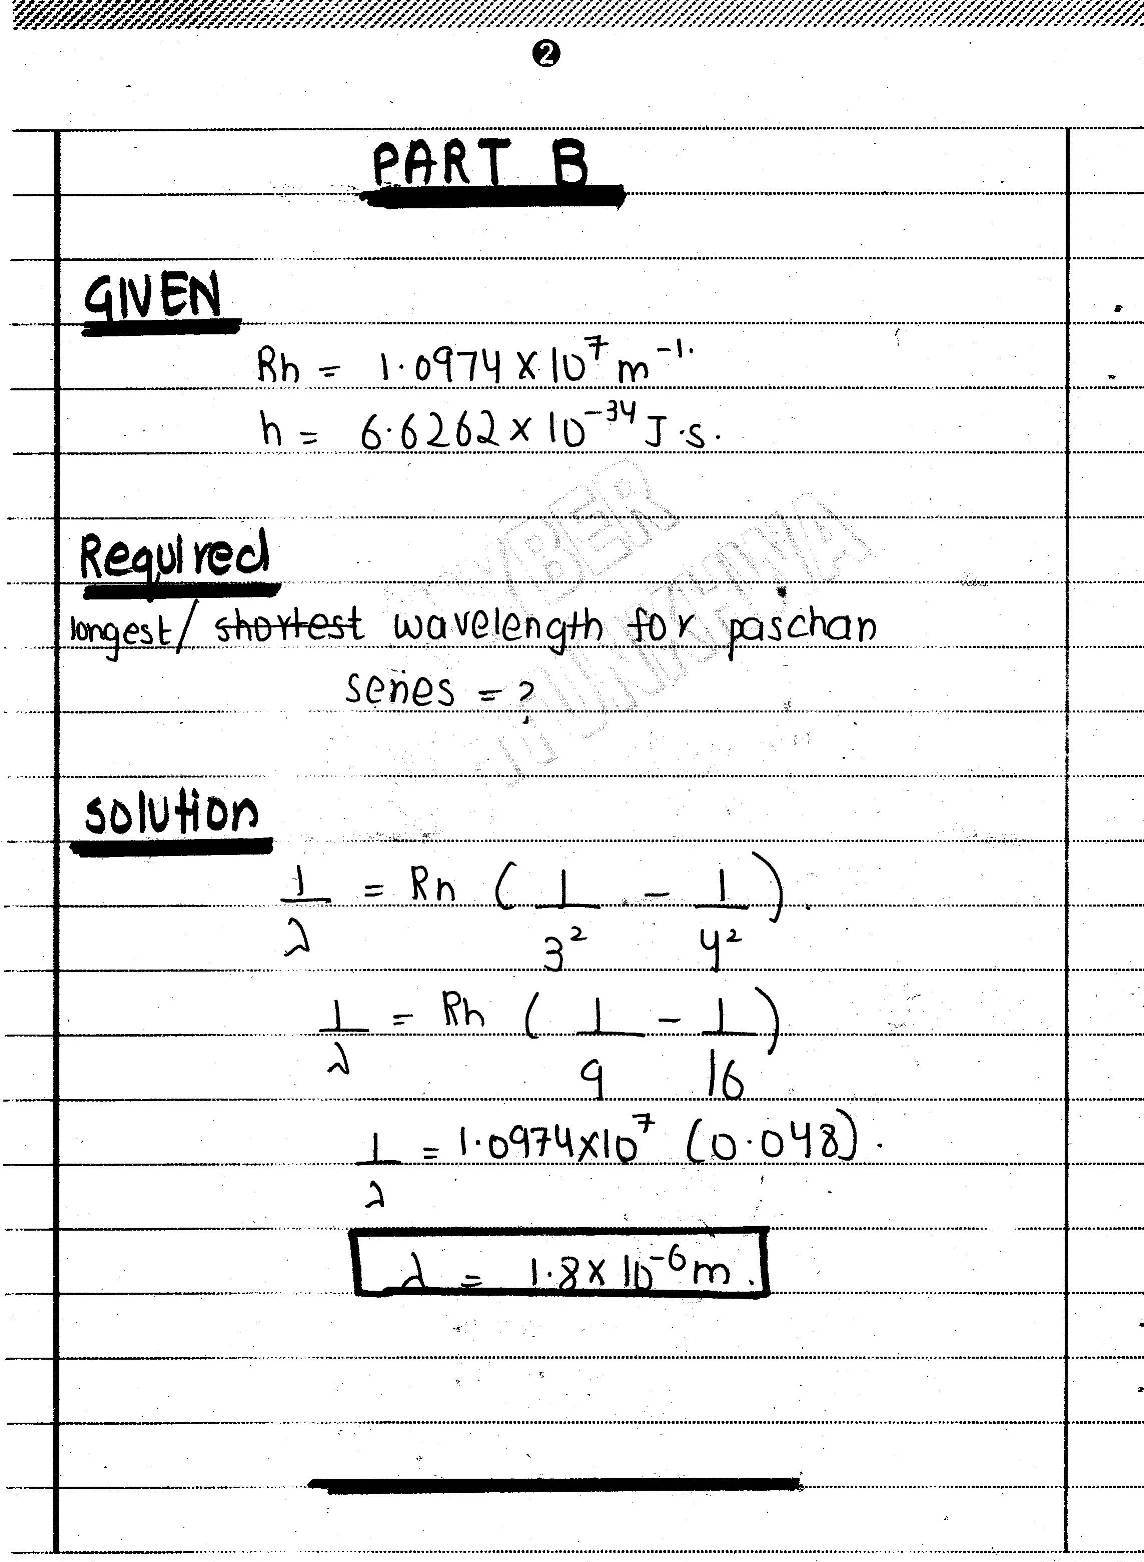 2
PART B
GIVEN
Rh = 1.0974 × 10⁷ m⁻¹.
h = 6.6262 × 10⁻³⁴ J.s.
Required
longest/ shortest wavelength for paschan
series = ?
solution
1/λ = Rh ( 1/3² - 1/4² ).
1/λ = Rh ( 1/9 - 1/16 )
1/λ = 1.0974×10⁷ (0.048).
λ = 1.8 × 10⁻⁶ m.